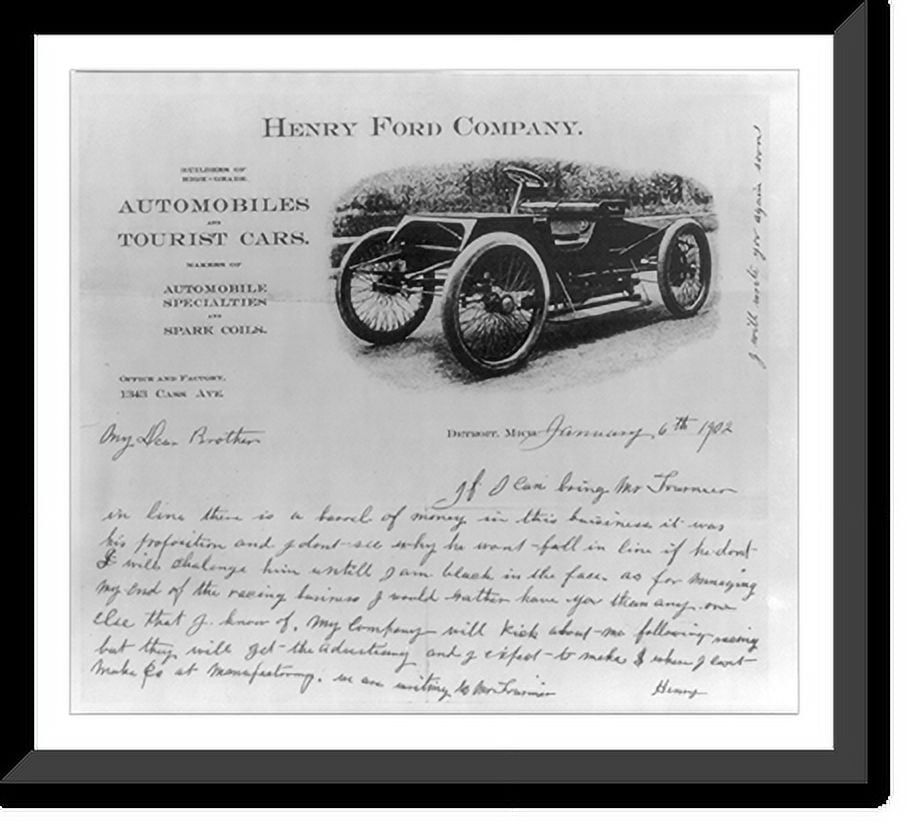 HENRY FORD COMPANY.
BUILDERS OF
HIGH-GRADE
AUTOMOBILES
AND
TOURIST CARS.
MAKERS OF
AUTOMOBILE
SPECIALTIES
AND
SPARK COILS.
OFFICE AND FACTORY,
1343 CASS AVE.
DETROIT, MICH. January 6th 1902
My Dear Brother
If I can bring Mr Fournier
in line there is a barrel of money in this business it was
his proposition and I dont see why he wont fall in line if he dont
I will chalenge him untill I am black in the face. as for managing
my end of the racing business I would rather have you than any one
else that I know of. My Company will kick about me following racing
but they will get the advertising and I expect to make $ where I cant
make ¢s at manufacturing. we are writing to Mr Fournier
Henry
I will write you again soon